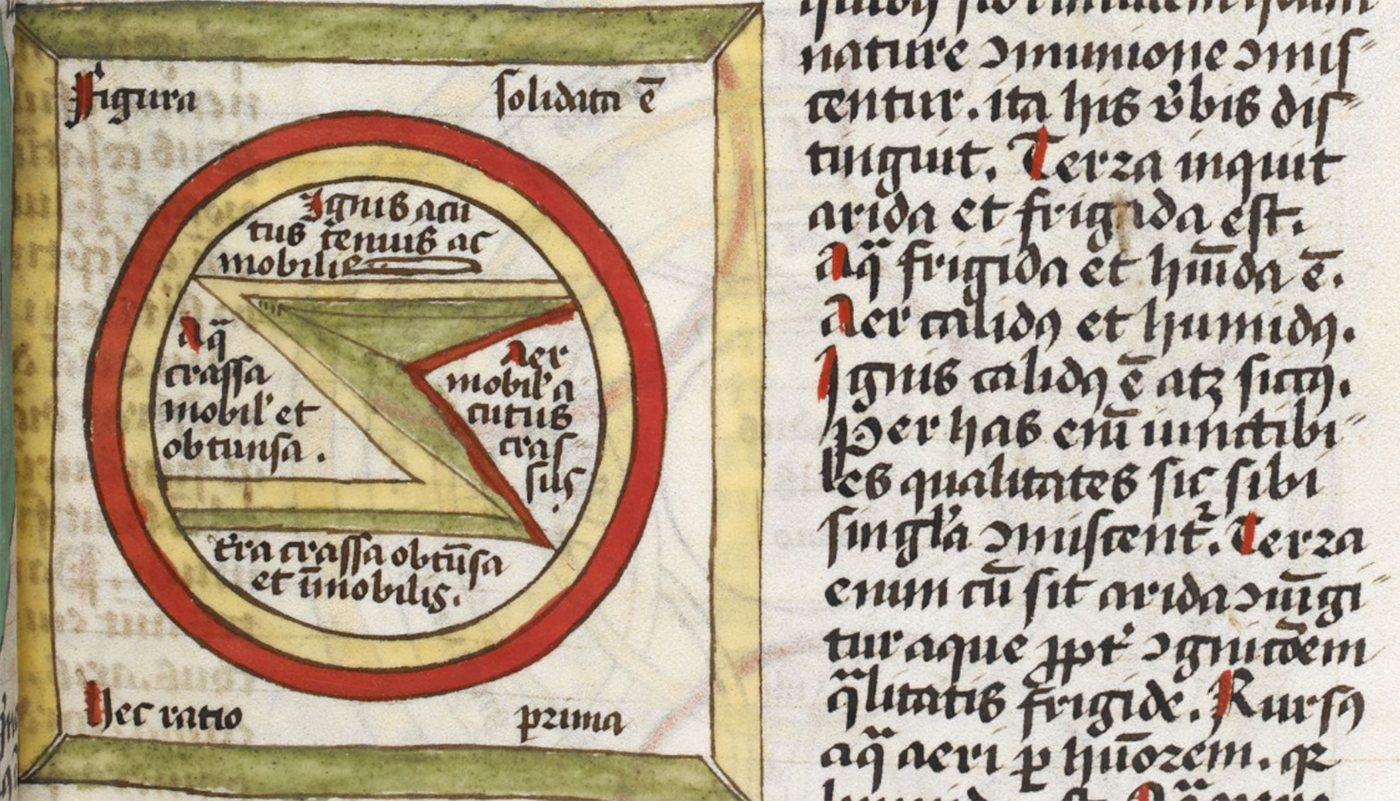 Figura solidata ē
Ignis acu
tus tenuis ac
mobilis
Aq̄
crassa
mobil' et
obtunsa .
Aer
mobil' a
cutus
cras
sus
.
t'ra crassa obtūsa
et īmobilis.
Hec ratio prima
nature ↄmunione ↄmis
centur. ita his v̓bis dis
tinguit. Terra inquit
arida et frigida est.
Aq̄ frigida et hūida ē.
Aer calidꝰ et humidꝰ.
Ignis calidꝰ ē atꝫ siccꝰ.
Per has enī iunctibi
les qualitates sic sibi
singl'a ↄmiscent᷑. Terra
enim cū sit arida ↄiūgi
tur aque ꝓpt' ↄgnicōem
q̄litatis frigide. Rursꝰ
aq̄ aeri ꝑ hūorem. qꝛ